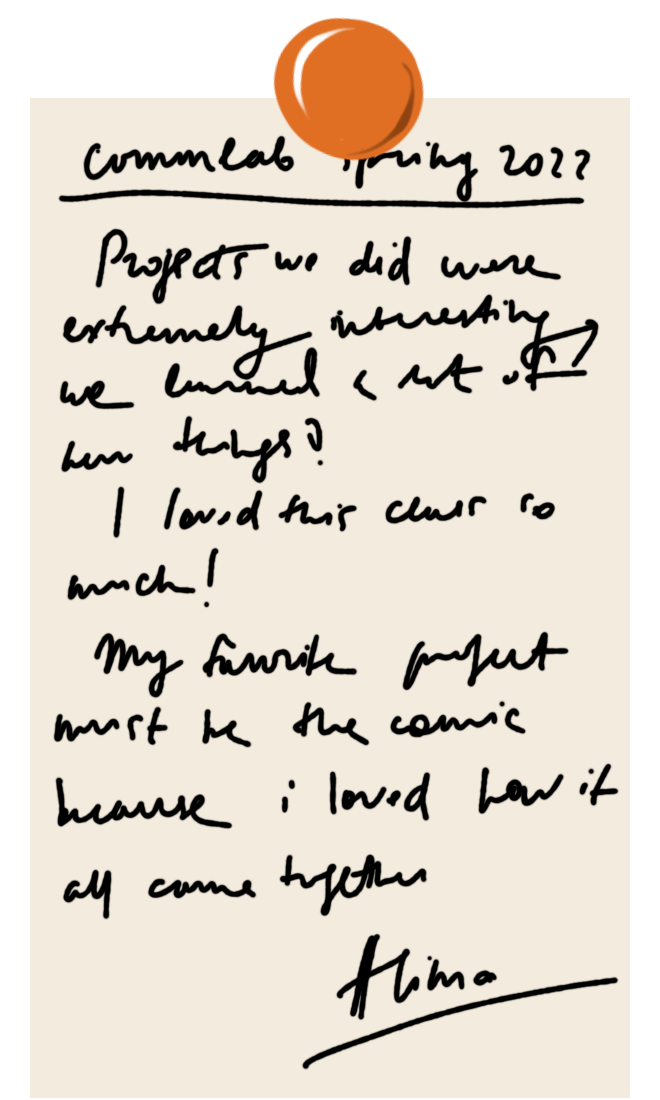 Commlab Spring 2022
Projects we did were
extremely interesting
we learned a lot of
new things!
I loved this class so
much!
My favorite project
must be the comic
because i loved how it
all came together
Alima